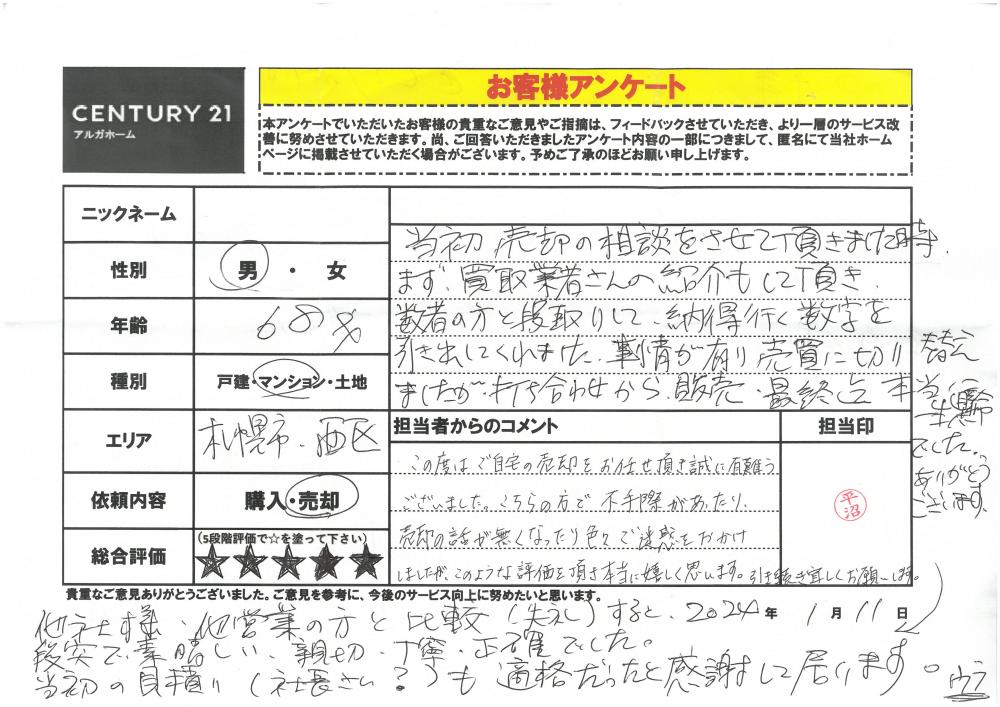 CENTURY 21
アルガホーム
お客様アンケート
本アンケートでいただいたお客様の貴重なご意見やご指摘は、フィードバックさせていただき、より一層のサービス改
善に努めさせていただきます。尚、ご回答いただきましたアンケート内容の一部につきまして、匿名にて当社ホーム
ページに掲載させていただく場合がございます。予めご了承のほどお願い申し上げます。
ニックネーム
性別 男・女
年齢 68才
種別 戸建・マンション・土地
エリア 札幌市・西区
依頼内容 購入・売却
総合評価 (5段階評価で☆を塗って下さい)
★★★★★
当初売却の相談をさせて頂きました時、
まず、買取業者さんの紹介もして頂き、
数者の方と段取りして、納得行く数字を
引き出してくれました。事情が有り売買に切り替え
ましたが、打ち合わせから、販売・最終迄 本当に
一生懸命
でした。
ありがとう
ございます。
担当者からのコメント
担当印
この度はご自宅の売却をお任せ頂き誠に有難う
ございました。こちらの方で不手際があったり、
売却の話が無くなったり色々ご迷惑をおかけ
しましたが、このような評価を頂き本当に嬉しく思います。引き続き宜しくお願いします。
平沼
貴重なご意見ありがとうございました。ご意見を参考に、今後のサービス向上に努めたいと思います。
2024年 1月11日
他社様・他営業の方と比較(失礼)すると、
段突で素晴しい、親切・丁寧・正確でした。
当初の見積り(社長さん?)も適格だったと感謝して居ります。
ウラ